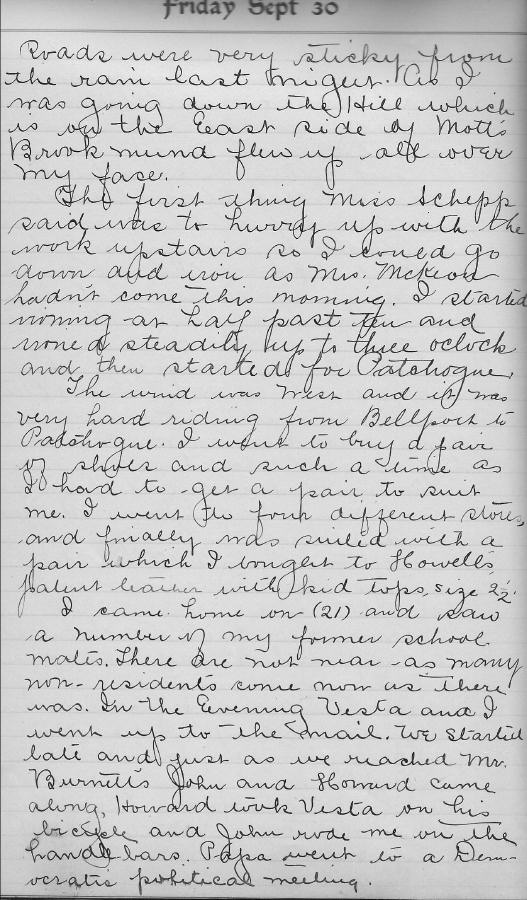 Friday Sept 30
Roads were very sticky from
the rain last night. As I
was going down the Hill which
is on the East side of Mott's
Brook mund flew up all over
my face.
The first thing Miss Schepp
said was to hurry up with the
work upstairs so I could go
down and iron as Mrs. McKeon
hadn't come this morning. I started
ironing at half past ten and
ironed steadily up to three oclock
and then started for Patchogue.
The wind was West and it was
very hard riding from Bellport to
Patchogue. I went to buy a pair
of shoes and such a time as
I had to get a pair to suit
me. I went to four different stores,
and finally was suited with a
pair which I bought to Howell's,
patent leather with kid tops, size 2½.
I came home on (21) and saw
a number of my former school
mates. There are not near as many
non-residents come now as there
was. In the Evening Vesta and I
went up to the mail. We started
late and just as we reached Mr.
Burnett's John and Howard came
along, Howard took Vesta on his
bicycle and John rode me on the
handle bars. Papa went to a Dem-
ocratic political meeting.